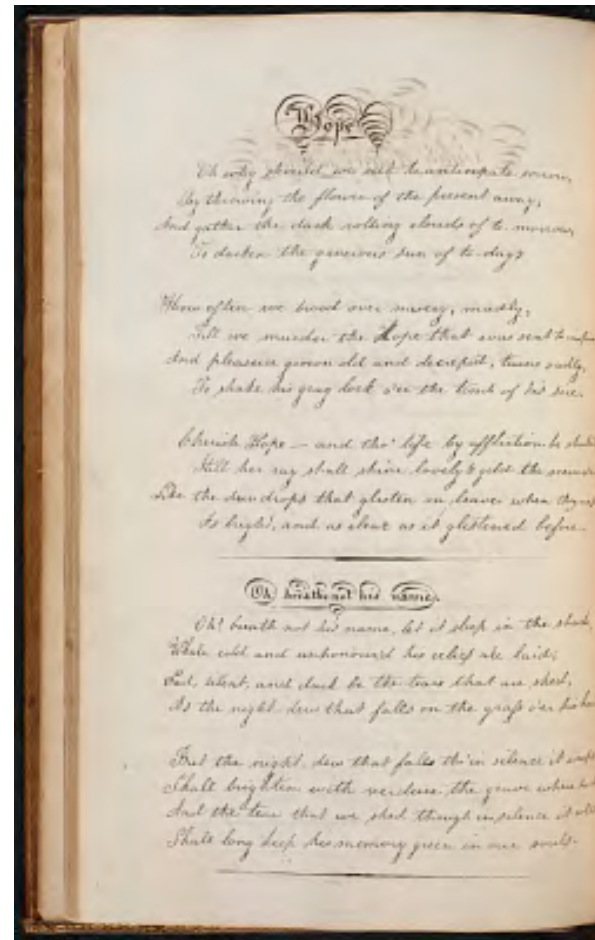 Hope
Oh why should we seek to anticipate sorrow,
By throwing the flower of the present away,
And gather the dark rolling clouds of to-morrow,
To darken the generous sun of to-day?
How often we brood over misery, madly,
Till we murder the Hope that was sent to
And pleasure grown old and decrepid, turns sadly,
To shake his gray lock o'er the tomb of his sire.
Cherish Hope — and tho' life by affliction be
Still her ray shall shine lovely & gild the
Like the dew drops that glisten on leaves when
As bright, and as clear as it glistened before.
Oh breathe not his name.
Oh! breath not his name, let it sleep in the shade,
Where cold and unhonour'd his relics are laid;
Sad, silent, and dark be the tears that are shed,
As the night dew that falls on the grass o'er his
But the night dew that falls tho' in silence it
Shall brighten with verdure the grave where
And the tear that we shed though in silence it
Shall long keep his memory green in our souls.